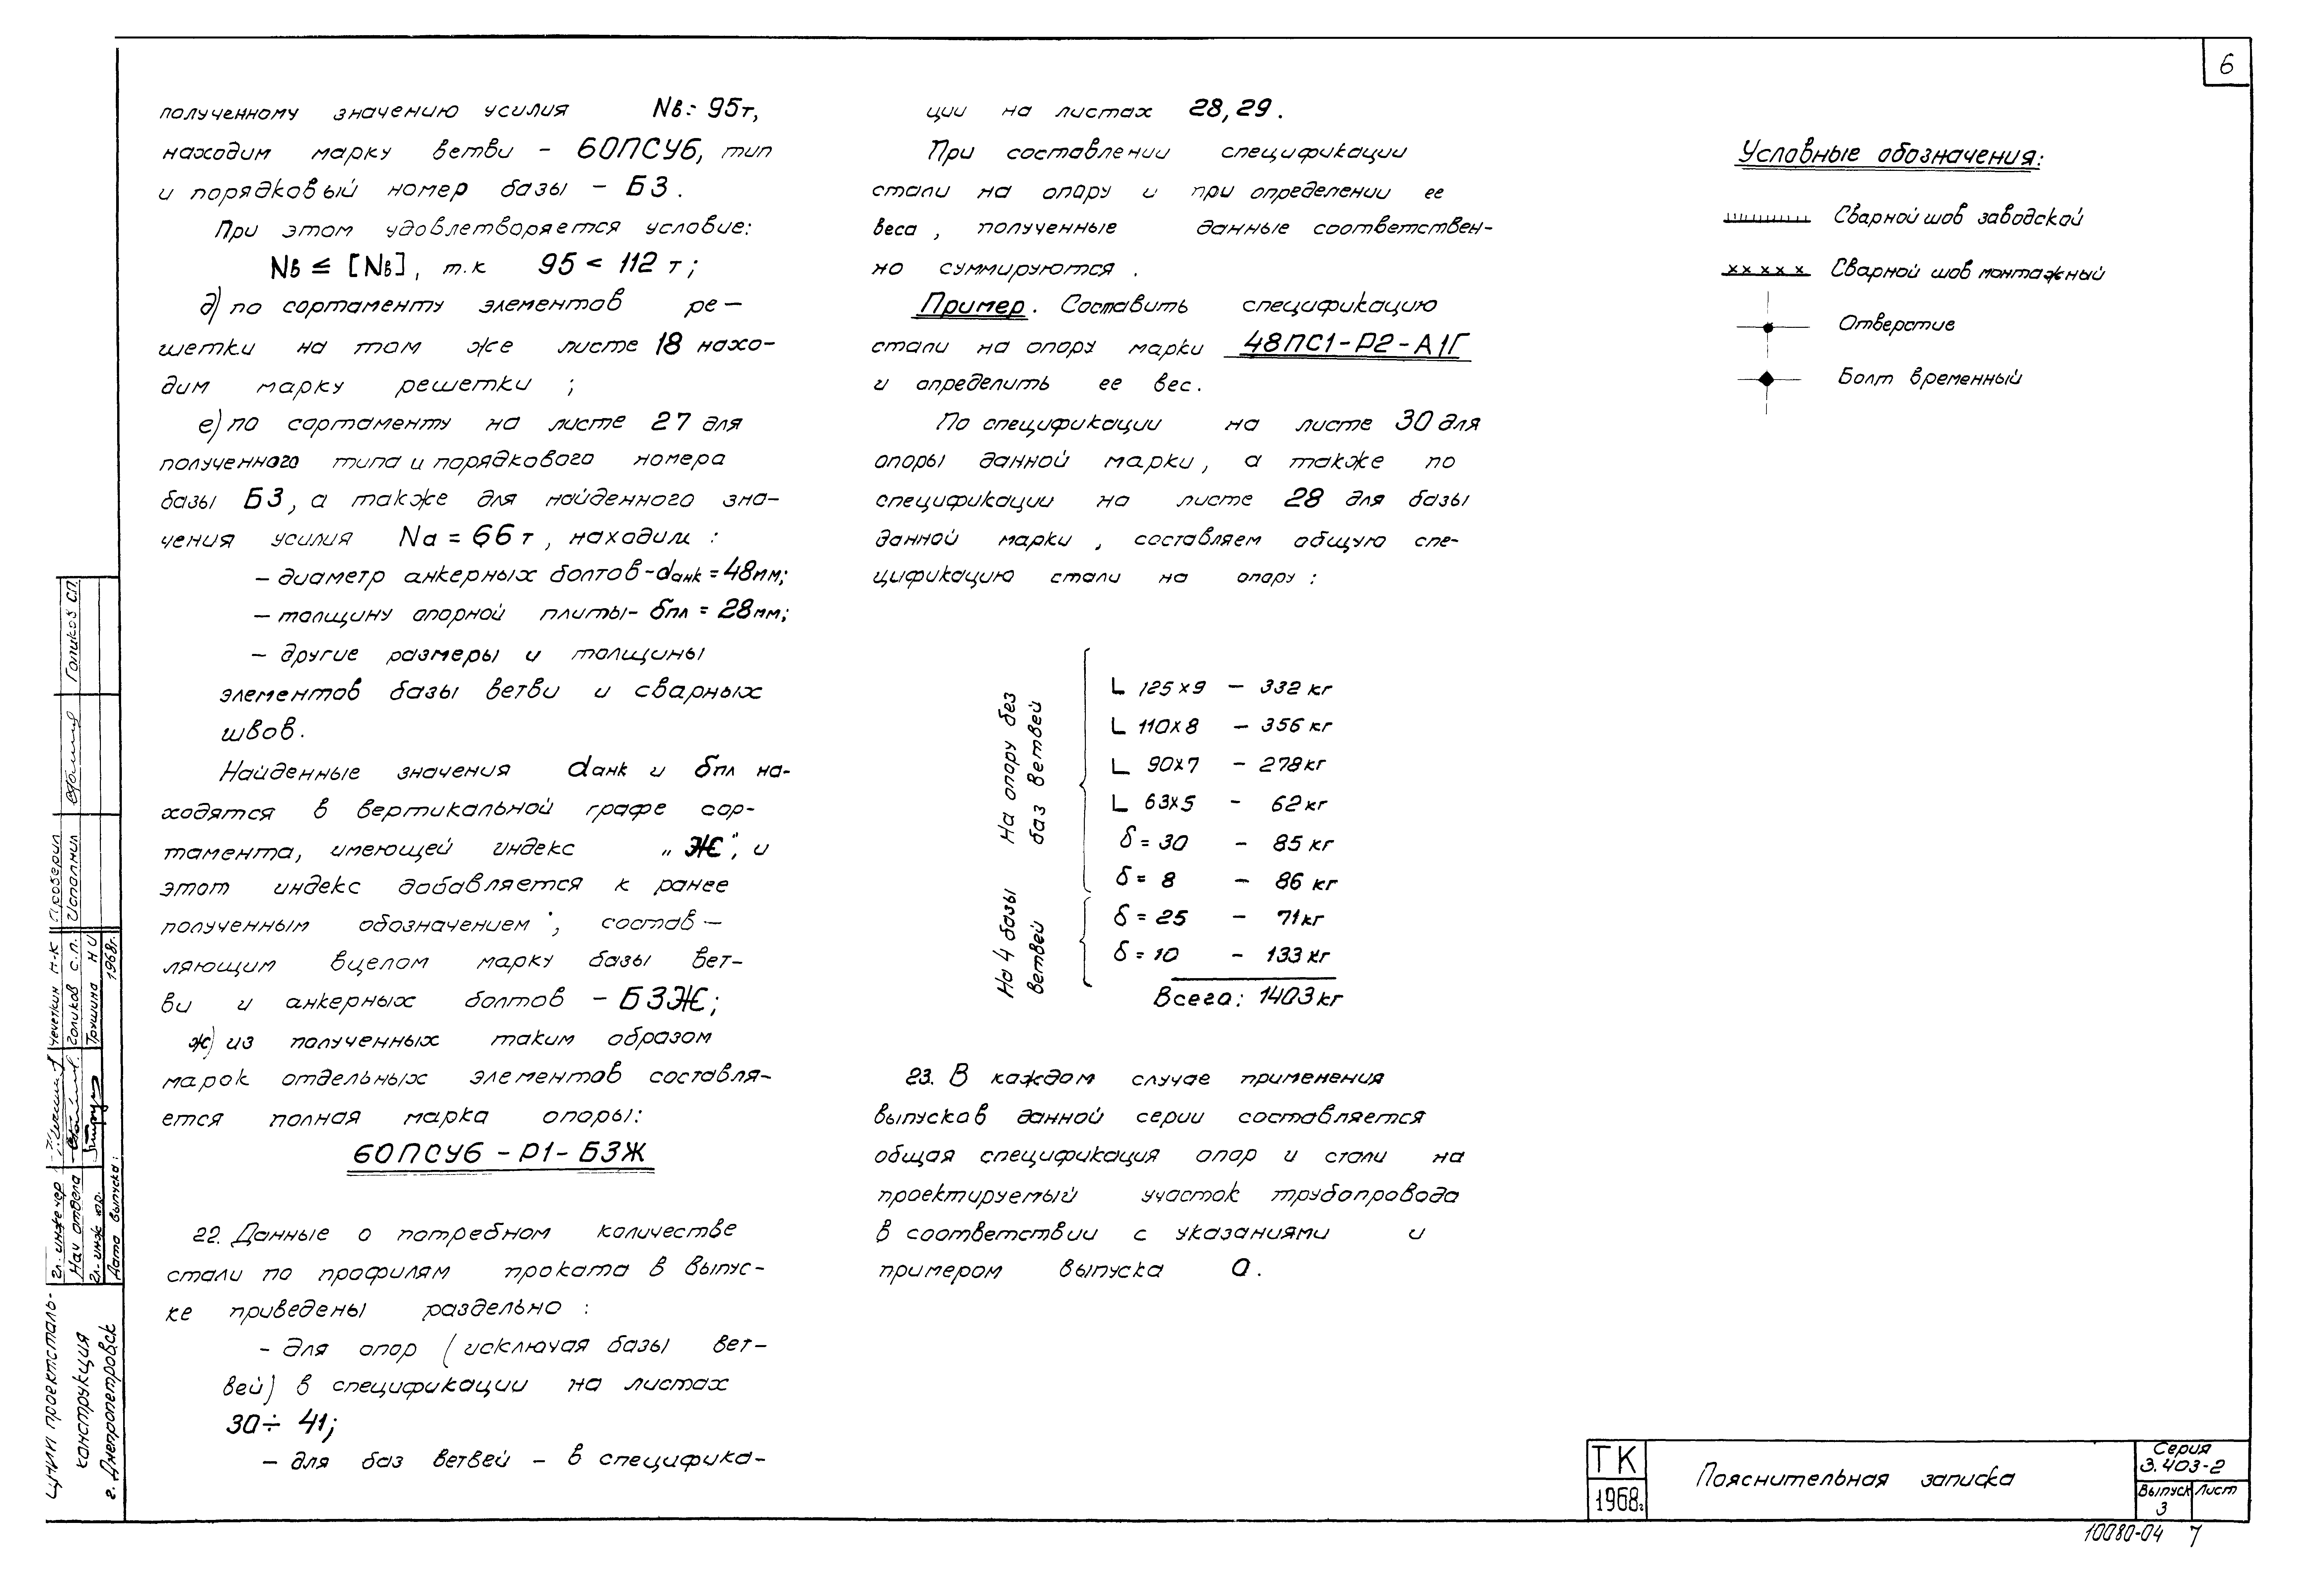 6
полученному значению усилия Nв = 95т,
находим марку ветви - 60ПСУ6, тип
и порядковый номер базы - Б3.
При этом удовлетворяется условие:
Nв ≤ [Nв], т.к 95 < 112 т;
д) по сортаменту элементов ре-
шетки на том же листе 18 нахо-
дим марку решетки ;
е) по сортаменту на листе 27 для
полученного типа и порядкового номера
базы Б3, а также для найденного зна-
чения усилия Nа = 66 т, находим :
- диаметр анкерных болтов - dанк = 48мм;
- толщину опорной плиты - δпл = 28мм;
- другие размеры и толщины
элементов базы ветви и сварных
швов.
Найденные значения dанк и δпл на-
ходятся в вертикальной графе сор-
тамента, имеющей индекс „Ж", и
этот индекс добавляется к ранее
полученным обозначением ; состав-
ляющим вцелом марку базы вет-
ви и анкерных болтов - Б3Ж;
ж) из полученных таким образом
марок отдельных элементов составля-
ется полная марка опоры:
60ПСУ6 - Р1 - Б3Ж
22. Данные о потребном количестве
стали по профилям проката в выпус-
ке приведены раздельно :
- для опор (исключая базы вет-
вей) в спецификации на листах
30 ÷ 41;
- для баз ветвей - в специфика-
ции на листах 28, 29.
При составлении спецификации
стали на опору и при определении ее
веса, полученные данные соответствен-
но суммируются .
Пример. Составить спецификацию
стали на опору марки 48ПС1-Р2-А1Г
и определить ее вес.
По спецификации на листе 30 для
опоры данной марки, а также по
спецификации на листе 28 для базы
данной марки, составляем общую спе-
цификацию стали на опору :
На опору без
баз ветвей
L 125×9 - 332 кг
L 110×8 - 356 кг
L 90×7 - 278 кг
L 63×5 - 62 кг
δ = 30 - 85 кг
δ = 8 - 86 кг
На 4 базы
ветвей
δ = 25 - 71 кг
δ = 10 - 133 кг
Всего: 1403 кг
23. В каждом случае применения
выпусков данной серии составляется
общая спецификация опор и стали на
проектируемый участок трубопровода
в соответствии с указаниями и
примером выпуска 0.
Условные обозначения:
Сварной шов заводской
Сварной шов монтажный
Отверстие
Болт временный
ЦНИИ проектсталь-
конструкция
г. Днепропетровск
Гл. инженер Чечеткин Н.К Проверил Голиков СП
Нач отдела Голиков С.П. Исполнил
Гл. инж пр. Трушина НИ
Дата выпуска: 1968г.
ТК
1968г
Пояснительная записка
Серия
3.403-2
Выпуск Лист
3
10080-04 7